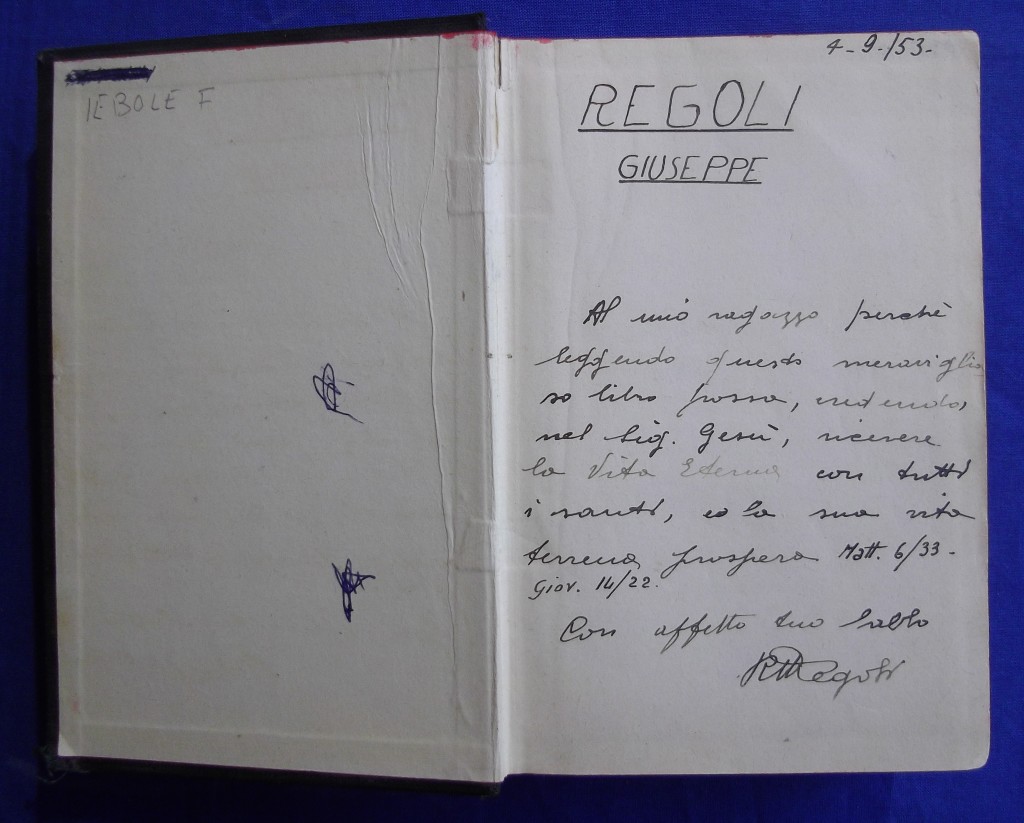 IEBOLE F
4-9-/53-
REGOLI
GIUSEPPE
Al mio ragazzo perchè
leggendo questo meraviglio
so libro possa, credendo,
nel Sig. Gesù, ricevere
la Vita Eterna con tutti
i santi, e la sua vita
terrena prospera Matt. 6/33-
Giov. 14/22.
Con affetto tuo babbo
Regoli